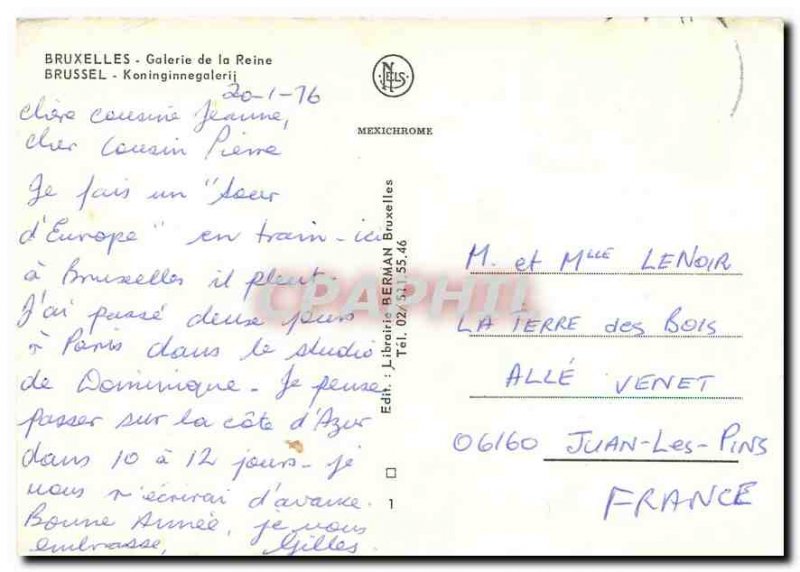 BRUXELLES - Galerie de la Reine
BRUSSEL - Koninginnegalerij
20-1-76
NELS
MEXICHROME
Chère cousine Jeanne,
cher cousin Pierre
Je fais un "tour
d'Europe" en train - ici
à Bruxelles il pleut.
J'ai passé deux jours
à Paris dans le studio
de Dominique - Je pense
passer sur la côte d'Azur
dans 10 à 12 jours - je
vous r'écrirai d'avance.
Bonne Année, je vous
embrasse, Gilles.
Edit.: Librairie BERMAN Bruxelles
Tél. 02/511.55.46
1
CPAPHIL
M. et Mlle LENOIR
LA TERRE des BOIS
ALLÉ VENET
06160 JUAN-LES-PINS
FRANCE